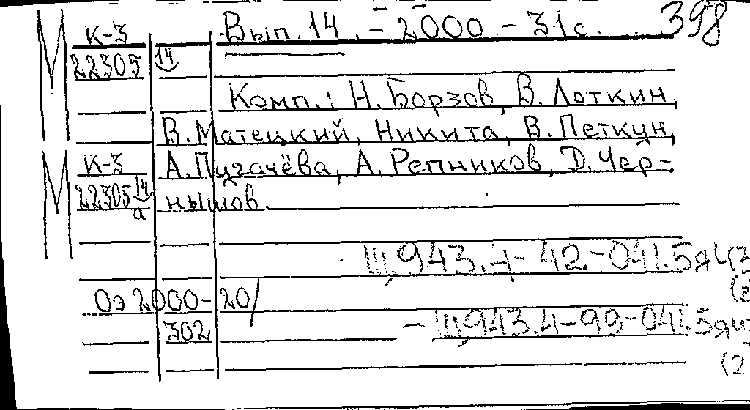 М К-3 Вып. 14. – 2000 – 31 с. 398
22305 14
Комп.: Н. Борзов, В. Лоткин,
В. Матецкий, Никита, В. Петкун,
М К-3 А. Пугачёва, А. Репников, Д. Чер-
22305 14 а нышов.
Щ943.4-42-041.5я4
Оэ 2000-20/
302 – Щ943.4-99-041.5я4
(2